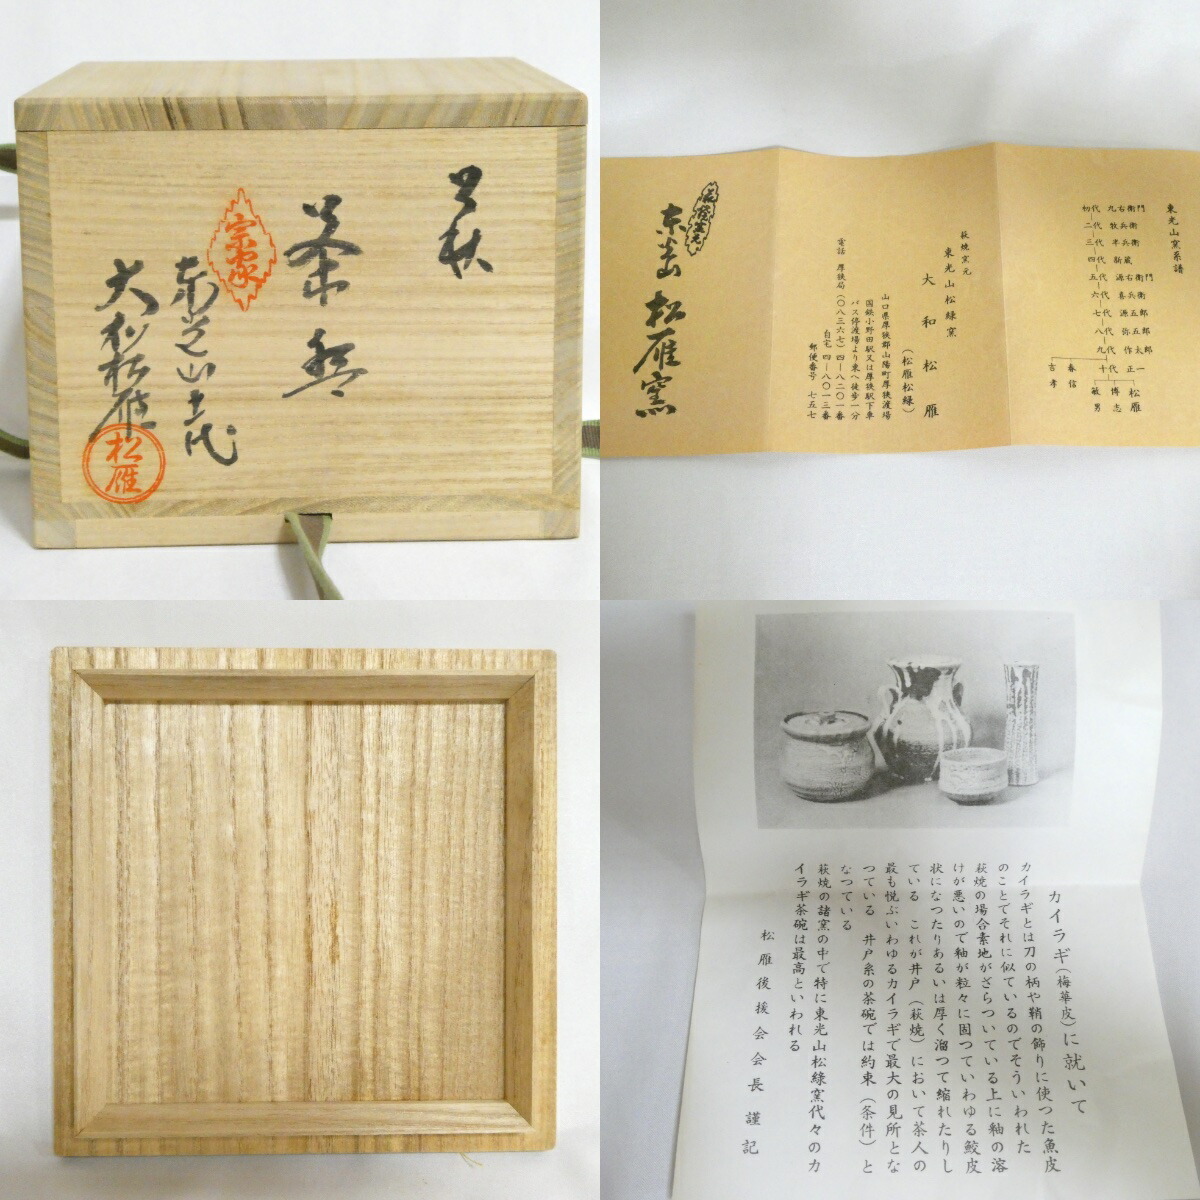 萩
茶碗
宗家
東光山十一代
大和松雁
松雁
東光山窯系譜
初代 九右衛門
二代 牧兵衛
三代 半兵衛
四代 新蔵
五代 源右衛門
六代 喜兵衛
七代 源五郎
八代 弥五郎
九代 作太郎
十代 正一
春信
吉孝
松雁
博志
敏男
萩焼窯元
東光山松緑窯
大和松雁
(松雁松緑)
山口県厚狭郡山陽町厚狭渡場
国鉄小野田駅又は厚狭駅下車
バス停渡場より東へ徒歩一分
電話 厚狭局(〇八三六七)四-八二〇一番
自宅 四-八〇一三番
郵便番号 七五七
萩焼窯元
松雁窯
カイラギ(梅華皮)に就いて
カイラギとは刀の柄や鞘の飾りに使つた魚皮
のことでそれに似ているのでそういわれた
萩焼の場合素地がざらついている上に釉の溶
けが悪いので釉が粒々に固つていわゆる鮫皮
状になつたりあるいは厚く溜つて縮れたりし
ている これが井戸(萩焼)において茶人の
最も悦ぶいわゆるカイラギで最大の見所とな
つている 井戸系の茶碗では約束(条件)と
なつている
萩焼の諸窯の中で特に東光山松緑窯代々のカ
イラギ茶碗は最高といわれる
松雁後援会会長 謹記